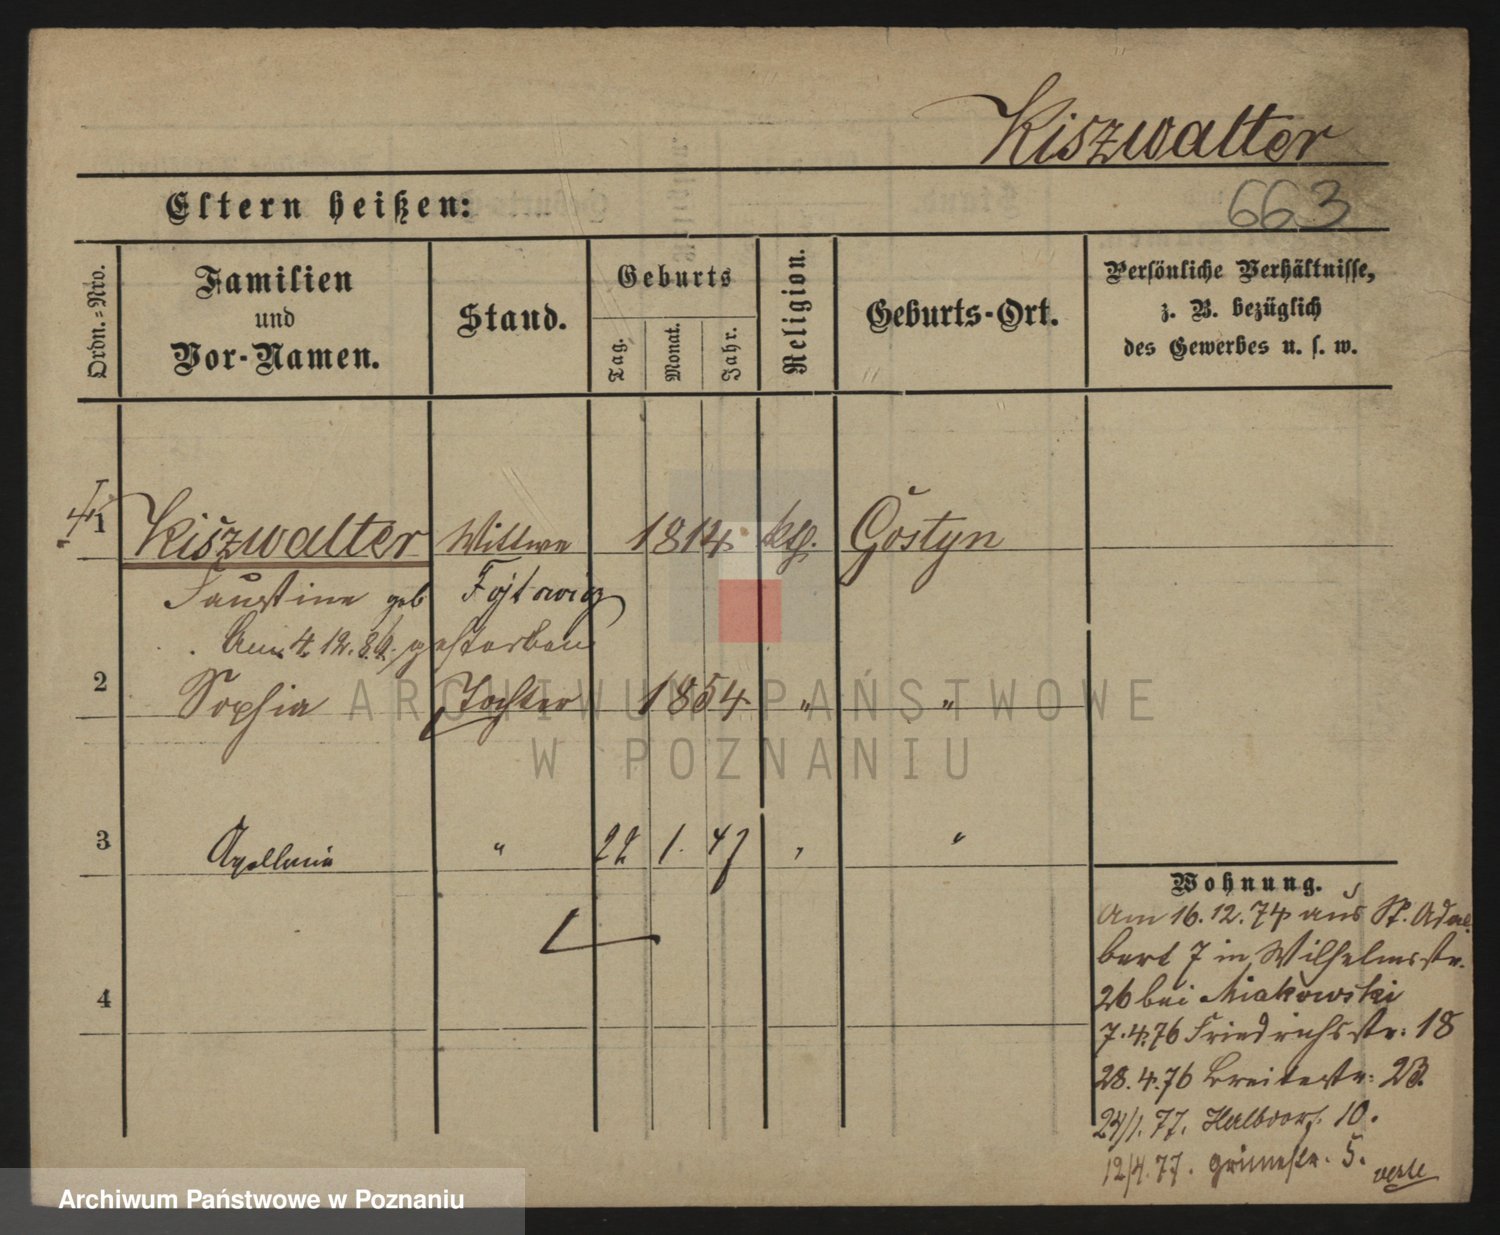 Kiszwalter
663
Eltern heißen:
Ordn.=Nro.
Familien
und
Vor-Namen.
Stand.
Geburts
Tag.
Monat.
Jahr.
Religion.
Geburts-Ort.
Persönliche Verhältnisse,
z. B. bezüglich
des Gewerbes u. s. w.
1 Kiszwalter Wittwe 1814 kth. Gostyn
Faustine geb Fojtowicz
Am 4.12. gestorben
2 Sophia Tochter 1854 " "
ARCHIWUM PAŃSTWOWE
W POZNANIU
3 Apollonia " 22 1. 47 " "
4
Wohnung.
Am 16.12.74 aus St. Adal
bert 7 in Wilhelmsstr.
26 bei Miakowski
7.4.76 Friedrichsstr. 18
28.4.76 Breitestr. 23.
24/1.77. Halbdorf. 10.
12/4.77. Grünestr. 5.
Archiwum Państwowe w Poznaniu